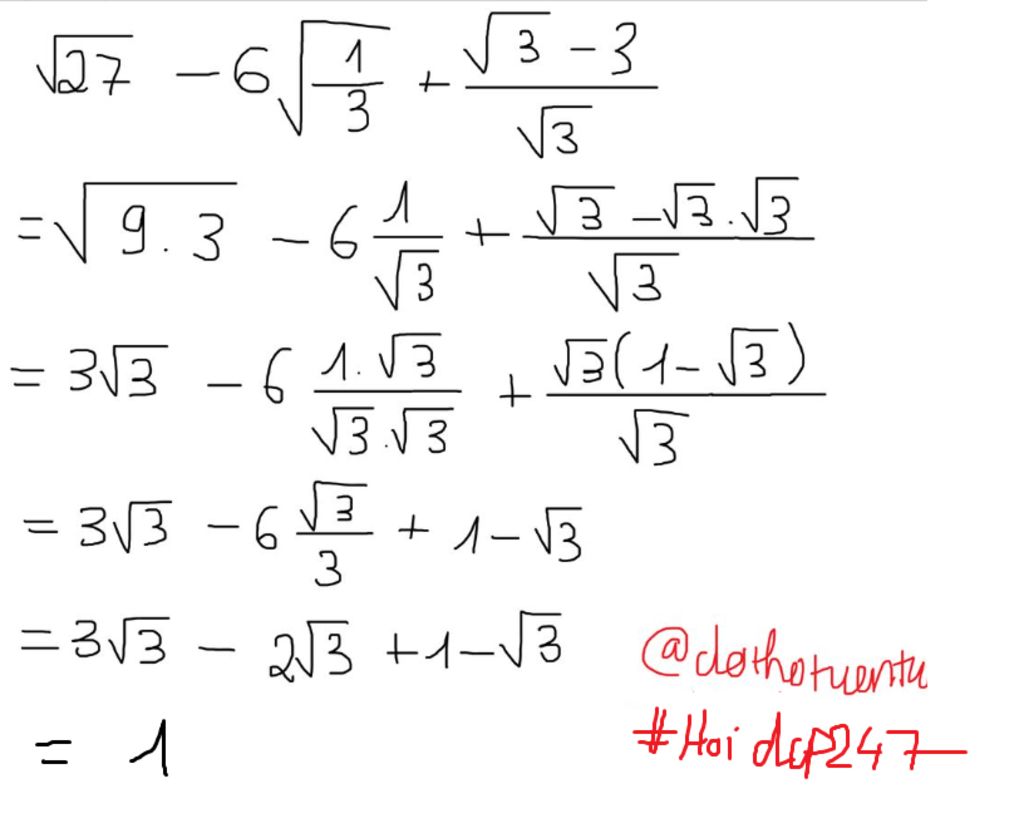 √27 − 6√(1/3) + (√3 − 3)/√3
= √(9.3) − 6 1/√3 + (√3 − √3.√3)/√3
= 3√3 − 6 (1.√3)/(√3.√3) + √3(1 − √3)/√3
= 3√3 − 6 √3/3 + 1 − √3
= 3√3 − 2√3 + 1 − √3
@dothotuentu
= 1
#Hoidap247